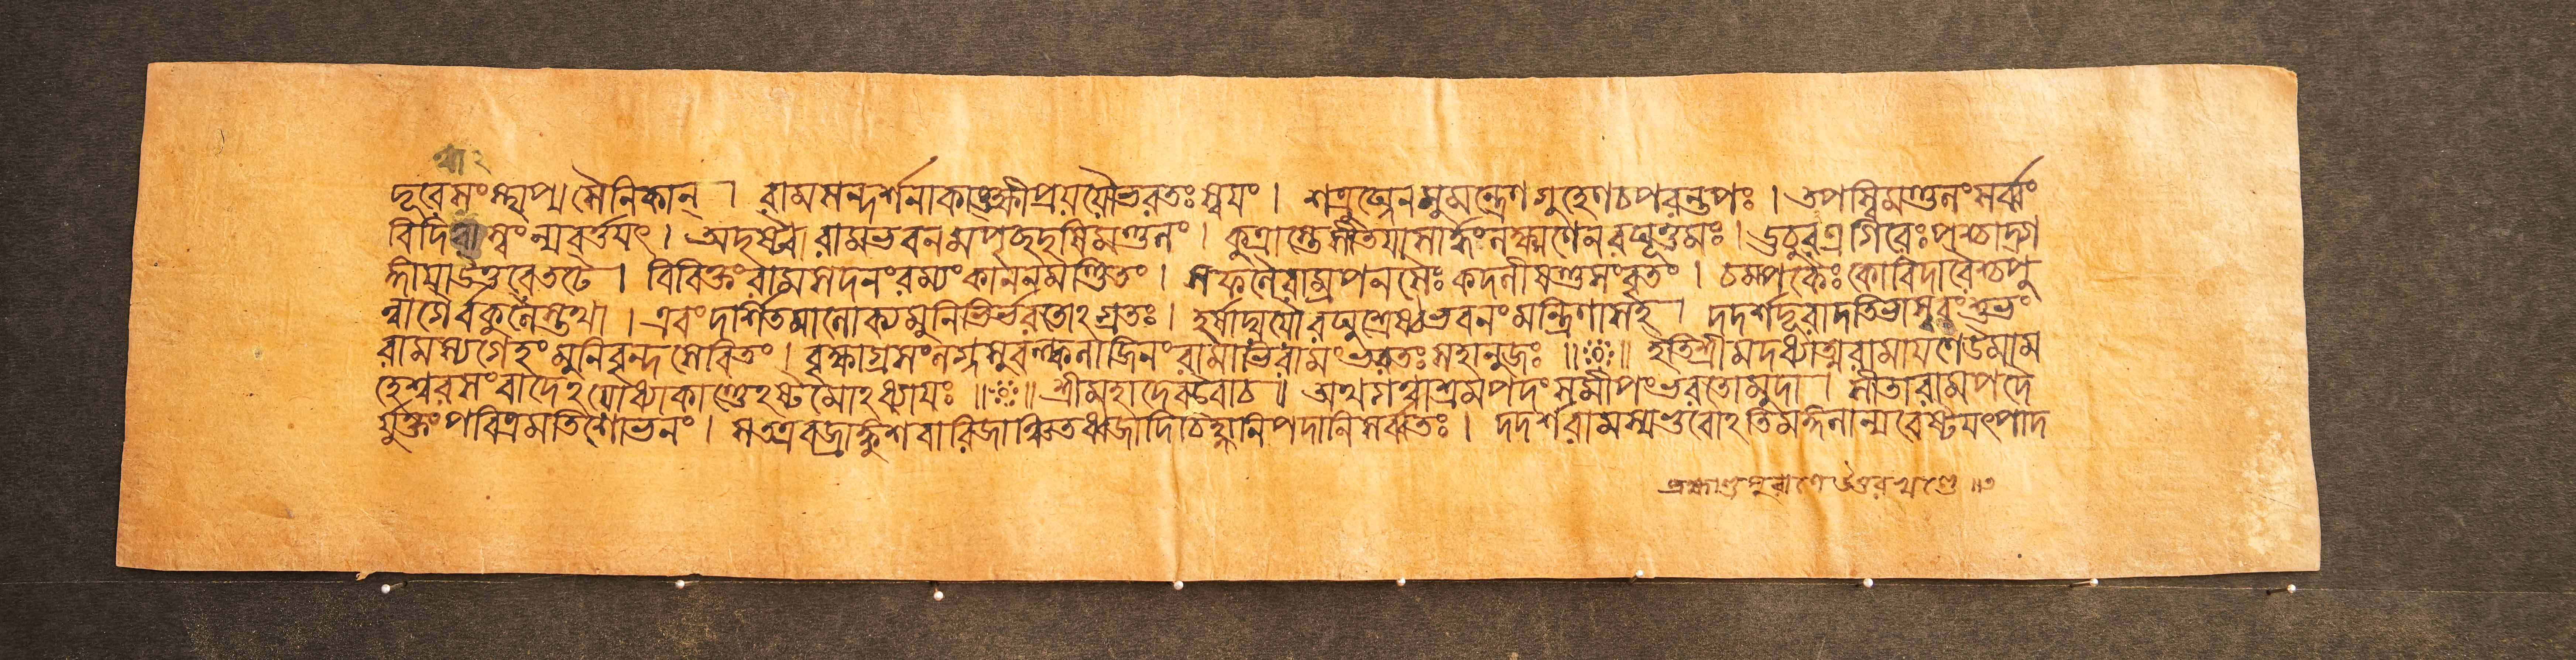 থা২
দূরেসংস্থাপ্য সৈনিকান্ । রামসন্দর্শনাকাঙ্ক্ষীপ্রযযৌভরতঃস্বযং । শত্রুঘ্নেনসুমন্ত্রেণগুহেণচপরন্তপঃ । তপস্বিমণ্ডলংসর্ব্বং
বিচি ন্যবর্ত্তযৎ । অদৃষ্ট্বা রামভবনমপৃচ্ছদৃষিমণ্ডলং । কুত্রাস্তেসীতযাসার্দ্ধংলক্ষ্মণেনরঘূত্তমঃ । ঊচুরগ্রেগিরেঃপশ্চাদ্গ
ঙ্গাযাউত্তরেতটে । বিবিক্তংরামসদনংরম্যংকাননমণ্ডিতং । সফলৈরাম্রপনসৈঃকদলীষণ্ডসংবৃতং । চম্পকৈঃকোবিদারৈশ্চপু
ন্নাগৈর্বকুলৈস্তথা । এবংদর্শিতমালোক্যমুনিভির্ভরতোঽগ্রতঃ । হর্ষাদ্যযৌরঘুশ্রেষ্ঠভবনংমন্ত্রিণাসহ । দদর্শদূরাদতিভাসুরংশুভং
রামস্যগেহংমুনিবৃন্দসেবিতং । বৃক্ষাগ্রসংলগ্নসুবল্কলাজিনংরামাভিরামংভরতঃসহানুজঃ ॥ ॥ ইতিশ্রীমদধ্যাত্মরামাযণেউমাম
হেশ্বরসংবাদেঽযোধ্যাকাণ্ডেঽষ্টমোঽধ্যাযঃ ॥ ॥ শ্রীমহাদেবউবাচ ॥ অথগত্বাশ্রমপদংসমীপংভরতোমুদা । সীতারামপদৈ
র্যুক্তংপবিত্রমতিশোভনং । সতত্রবজ্রাঙ্কুশবারিজাঞ্চিতধ্বজাদিচিহ্নানিপদানিসর্ব্বতঃ । দদর্শরামস্যভুবোঽতিমঙ্গলান্যচেষ্টযৎপাদ
ব্রহ্মাণ্ডপুরাণে উত্তরখণ্ডে ॥৩